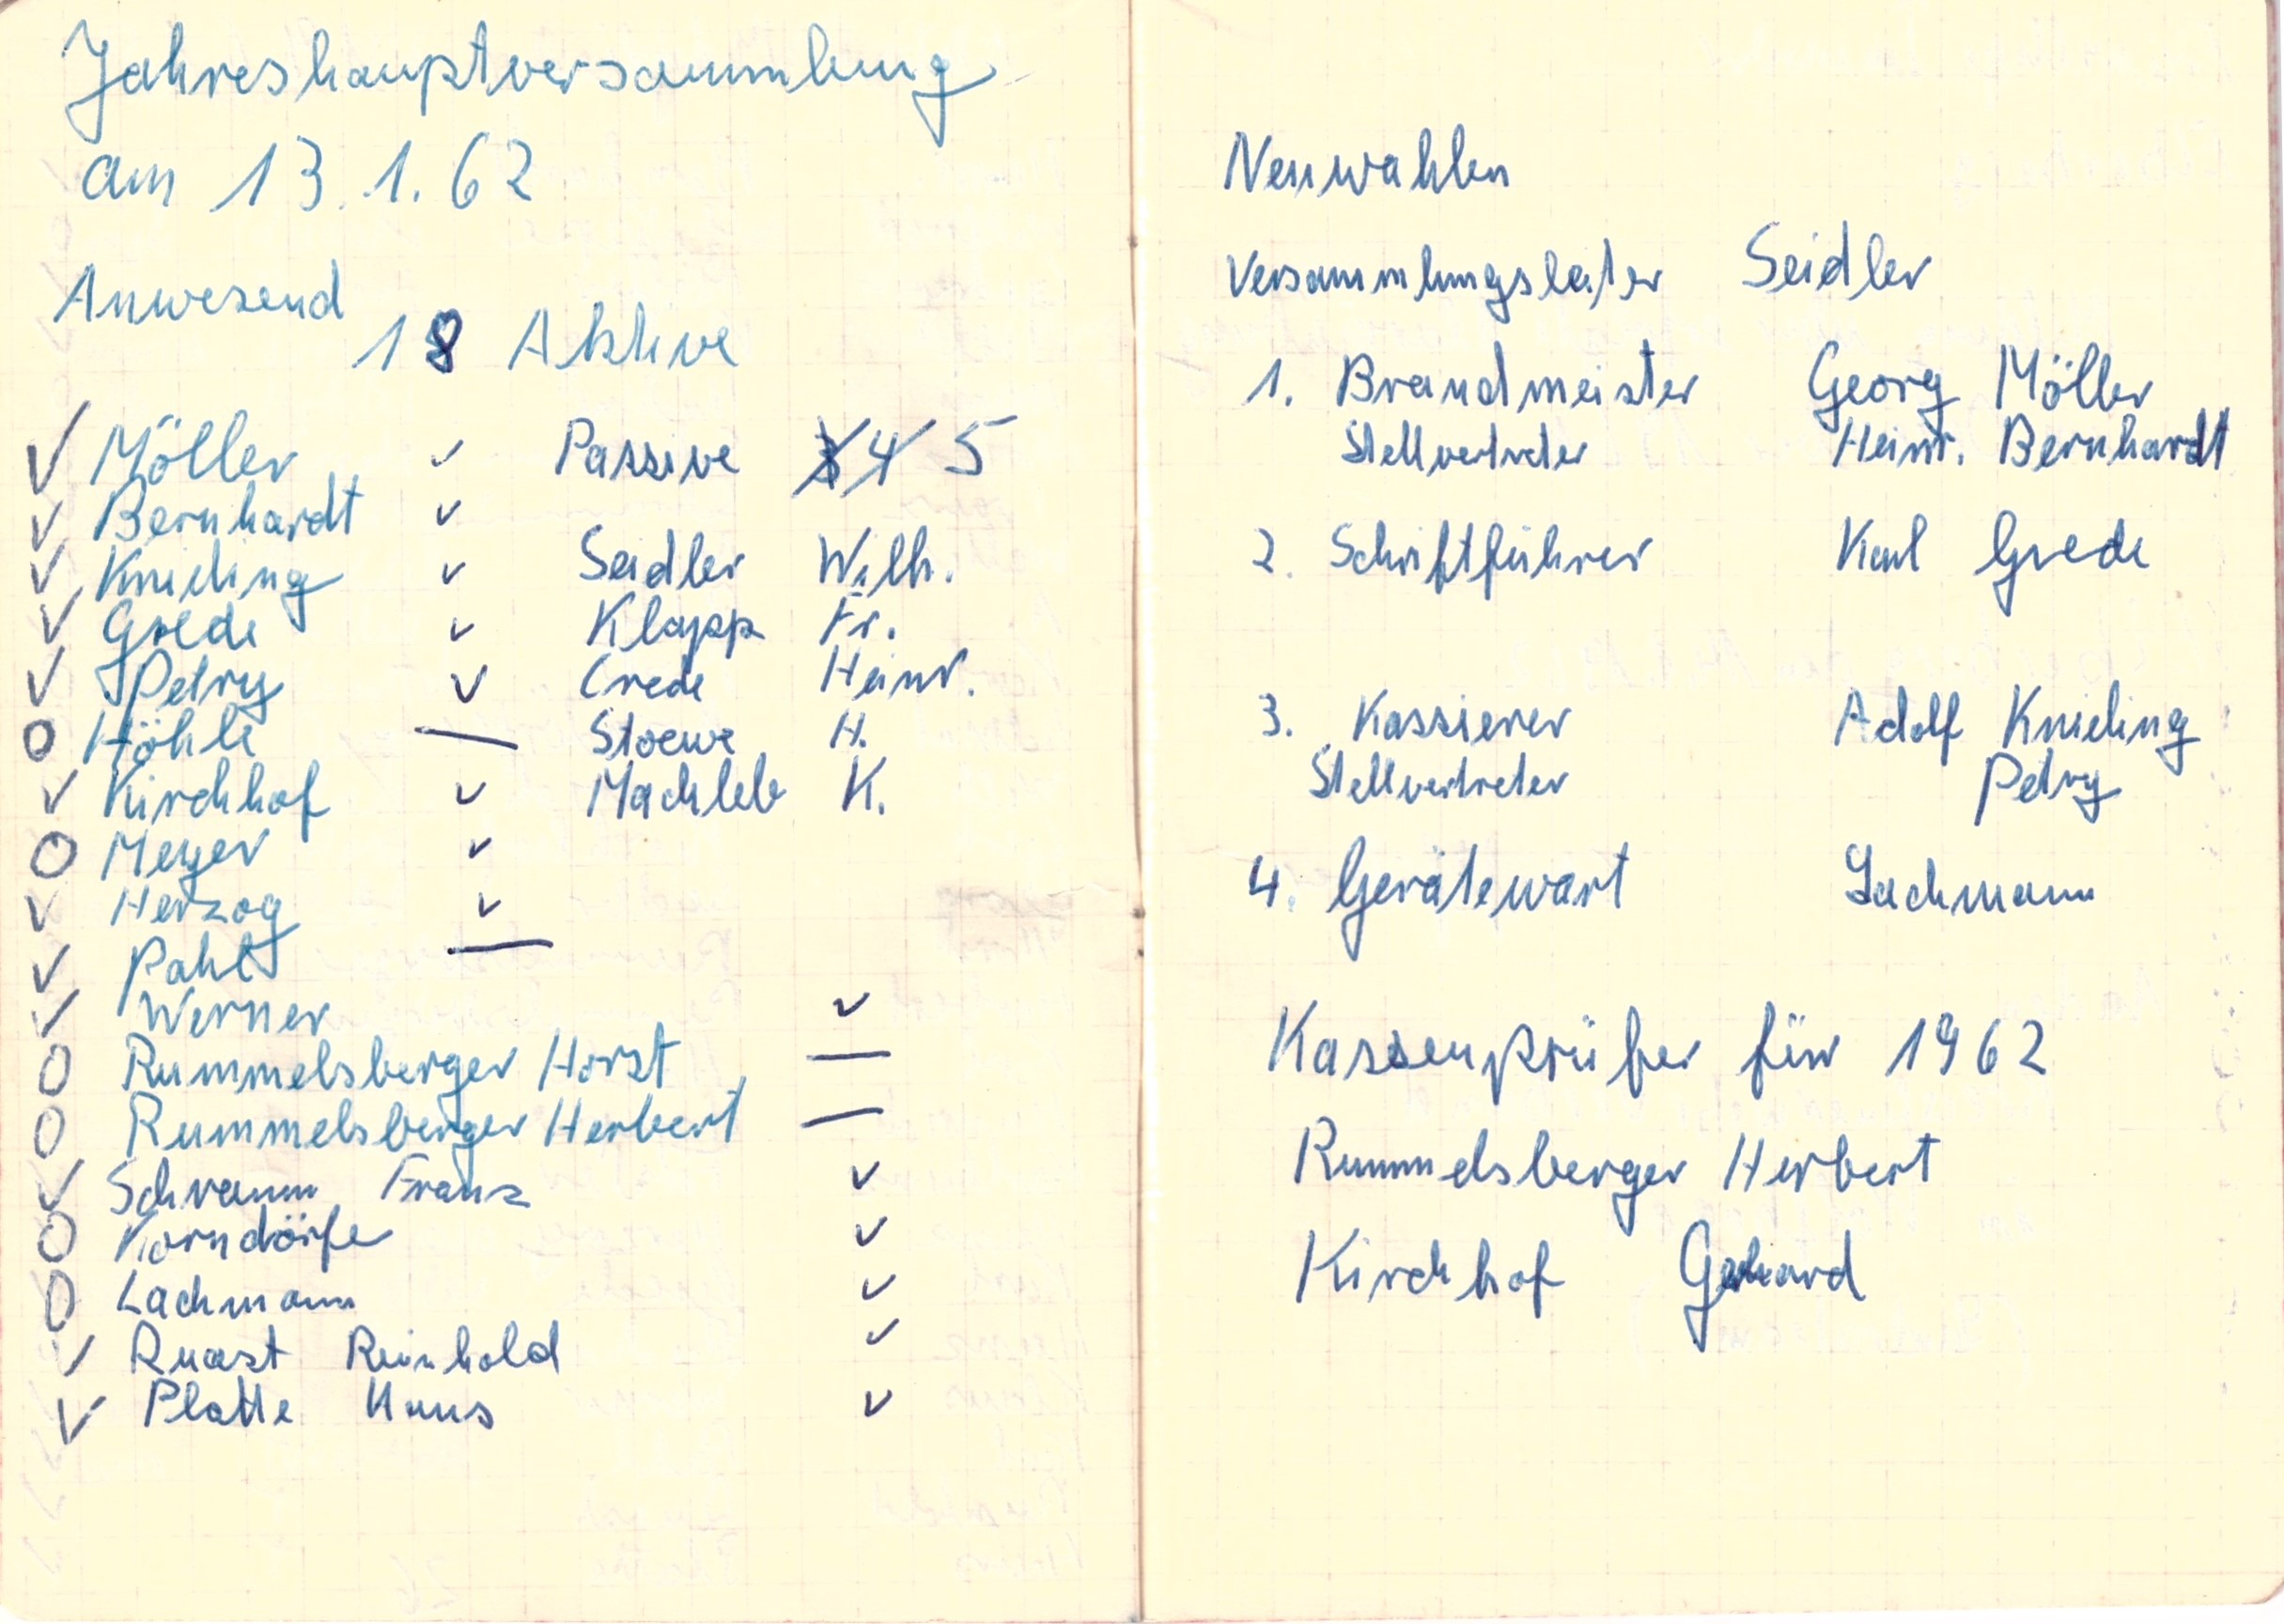 Jahreshauptversammlung
am 13.1.62
Anwesend
18 Aktive
✓ Möller ✓
✓ Bernhardt ✓
✓ Knieling ✓
✓ Grede ✓
✓ Petry ✓
O Höhle —
✓ Kirchhof ✓
O Meyer ✓
✓ Herzog ✓
✓ Pahl —
✓ Werner ✓
O Rummelsberger Horst —
O Rummelsberger Herbert —
✓ Schramm Franz ✓
O Korndörfer ✓
O Lachmann ✓
✓ Ruast Reinhold ✓
✓ Platte Hans ✓
Passive 3 4 5
Seidler Wilh.
Klapp Fr.
Crede Heinr.
Stoewe H.
Machleb K.
Neuwahlen
Versammlungsleiter Seidler
1. Brandmeister Georg Möller
Stellvertreter Heinr. Bernhardt
2. Schriftführer Karl Grede
3. Kassierer Adolf Knieling
Stellvertreter Petry
4. Gerätewart Lachmann
Kassenprüfer für 1962
Rummelsberger Herbert
Kirchhof Gerhard